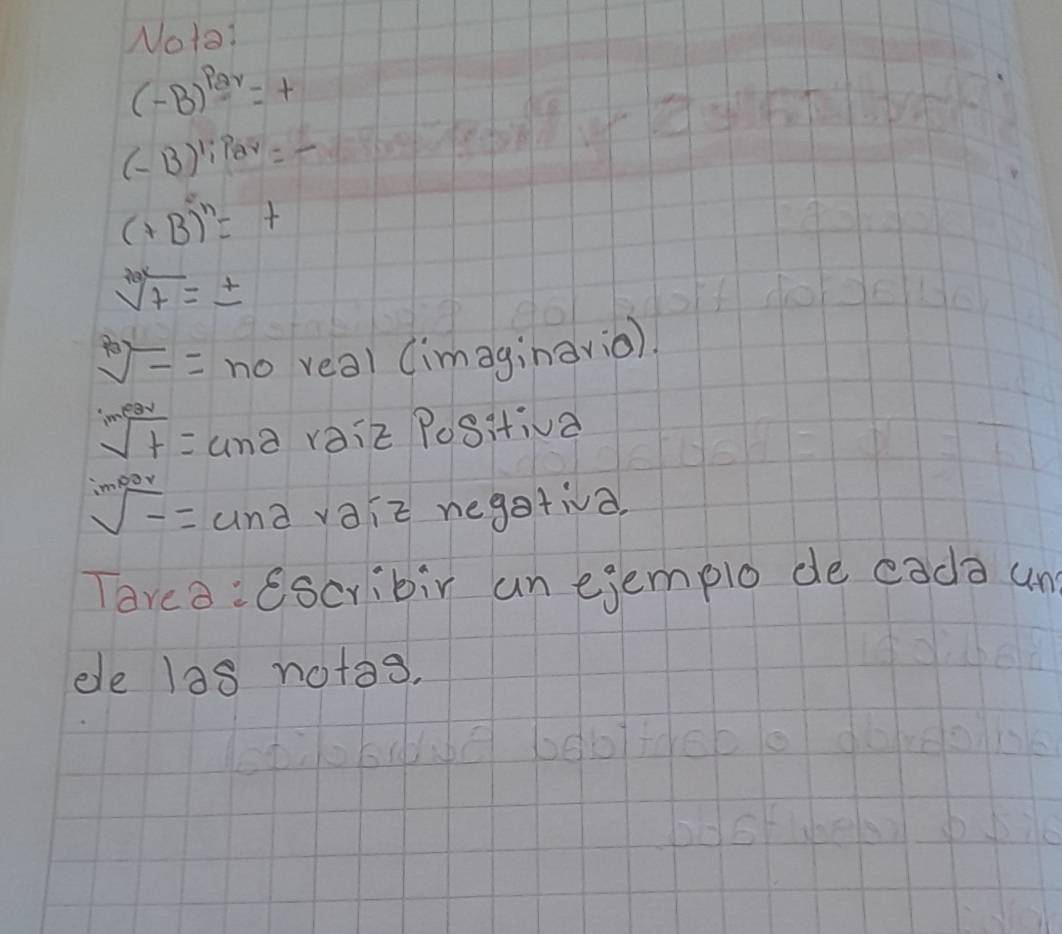 Nota:
(-B)^Par = +
(-B)^iPar = -
(+B)^n = +
^Par√+ = ±
^Par√- = no real (imaginario).
^impar√+ = una raiz Positiva
^impar√- = una raiz negativa.
Tarea: Escribir un ejemplo de cada un
de las notas.